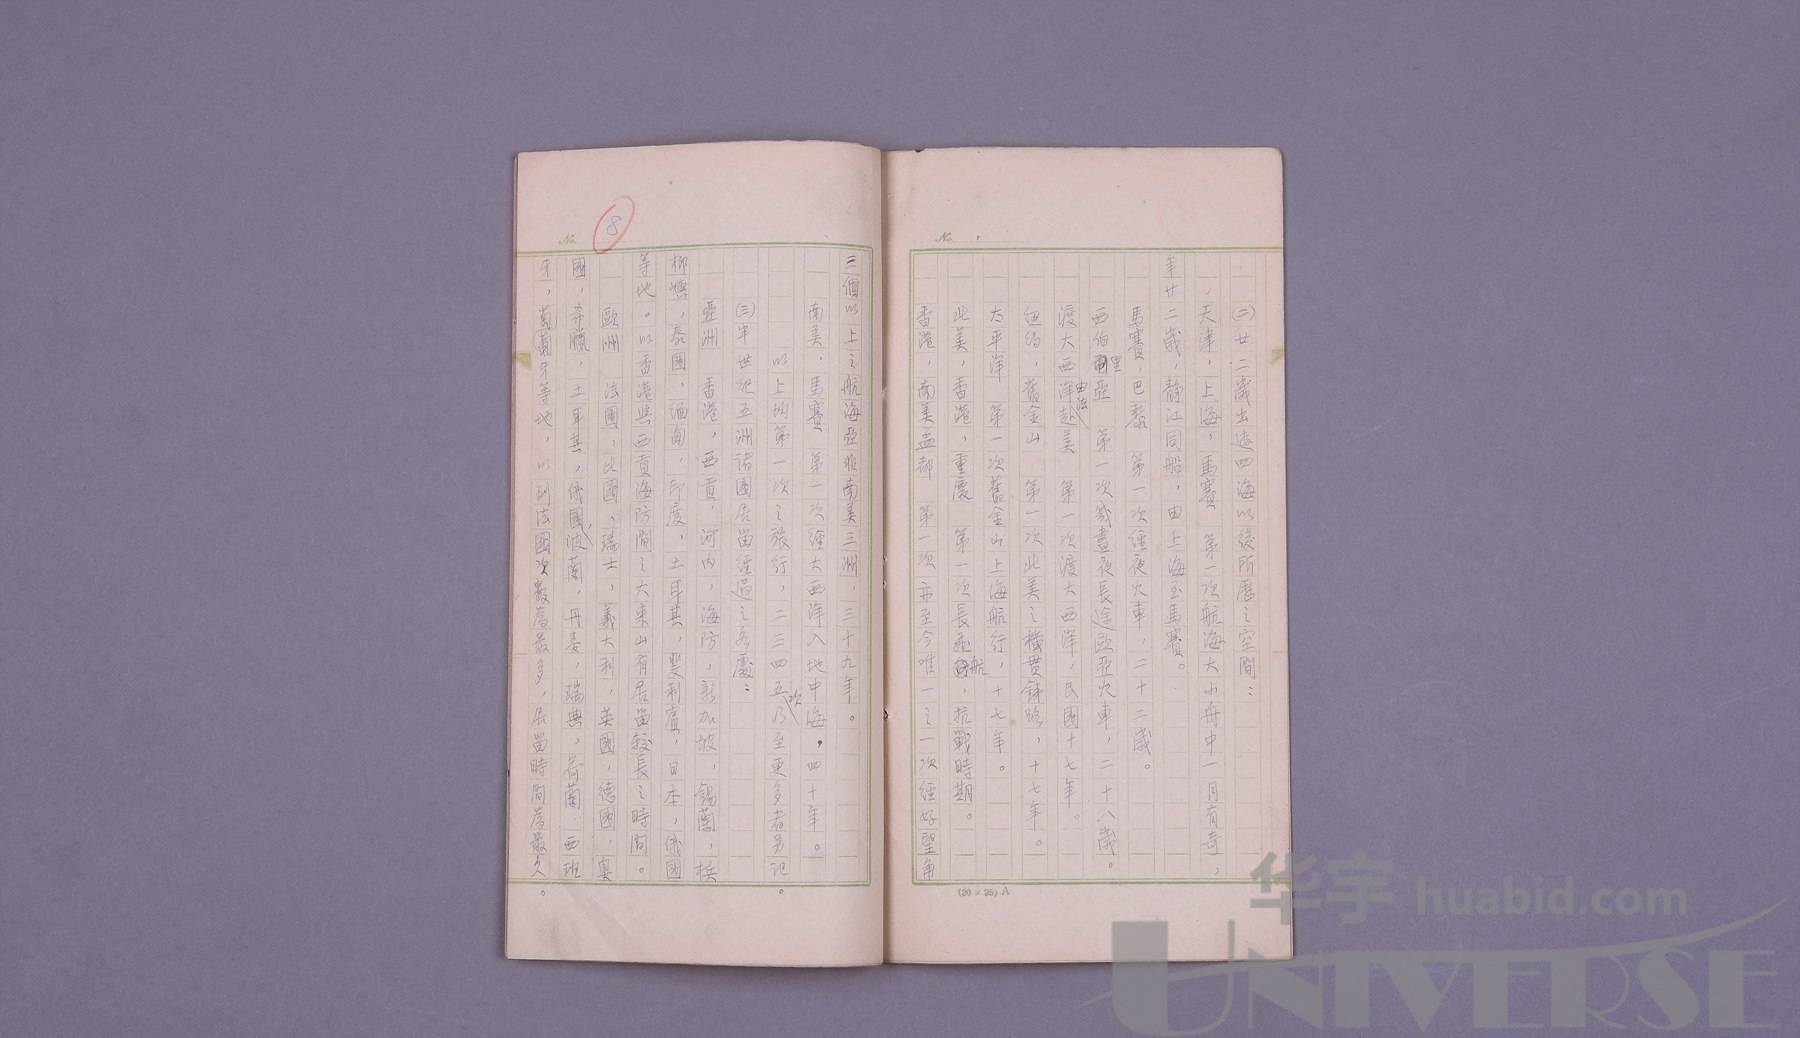 No.
(二)廿二歲出遠四海以後所歷之空間：
天津，上海，馬賽　第一次航海大小舟中一月有奇，
年廿二歲，靜江同船，由上海至馬賽。
馬賽，巴黎　第一次經夜火車，二十二歲。
西伯里亞　第一次幾晝夜長途歐亞火車，二十八歲。
渡大西洋由法赴美　第一次渡大西洋，民國十七年。
紐約，舊金山　第一次北美之橫貫鉄路，十七年。
太平洋　第一次舊金山上海航行，十七年。
北美，香港，重慶　第一次長途航，抗戰時期。
香港，南美孟都　第一次亦至今唯一之一次經好望角
(20×25) A
No. 8
三個以上之航海亞非南美三洲，三十九年。
南美，馬賽　第一次經大西洋入地中海，四十年。
以上均第一次之旅行，二三四五次乃至更多者另記。
(三)半世紀五洲諸國居留經過之各處：
亞洲　香港，西貢，河內，海防，新加坡，錫蘭，檳
榔嶼，泰國，緬甸，印度，土耳其，叙利亞，日本，俄國
等地。以香港與西貢海防間之大東山有居留較長之時間。
歐洲　法國，比國，瑞士，義大利，英國，德國，奧
國，希臘，土耳其，俄國，波蘭，丹麥，瑞典，荷蘭，西班
牙，葡萄牙等地，以到法國次數為最多，居留時間為最久。
华宇 huabid.com
UNIVERSE